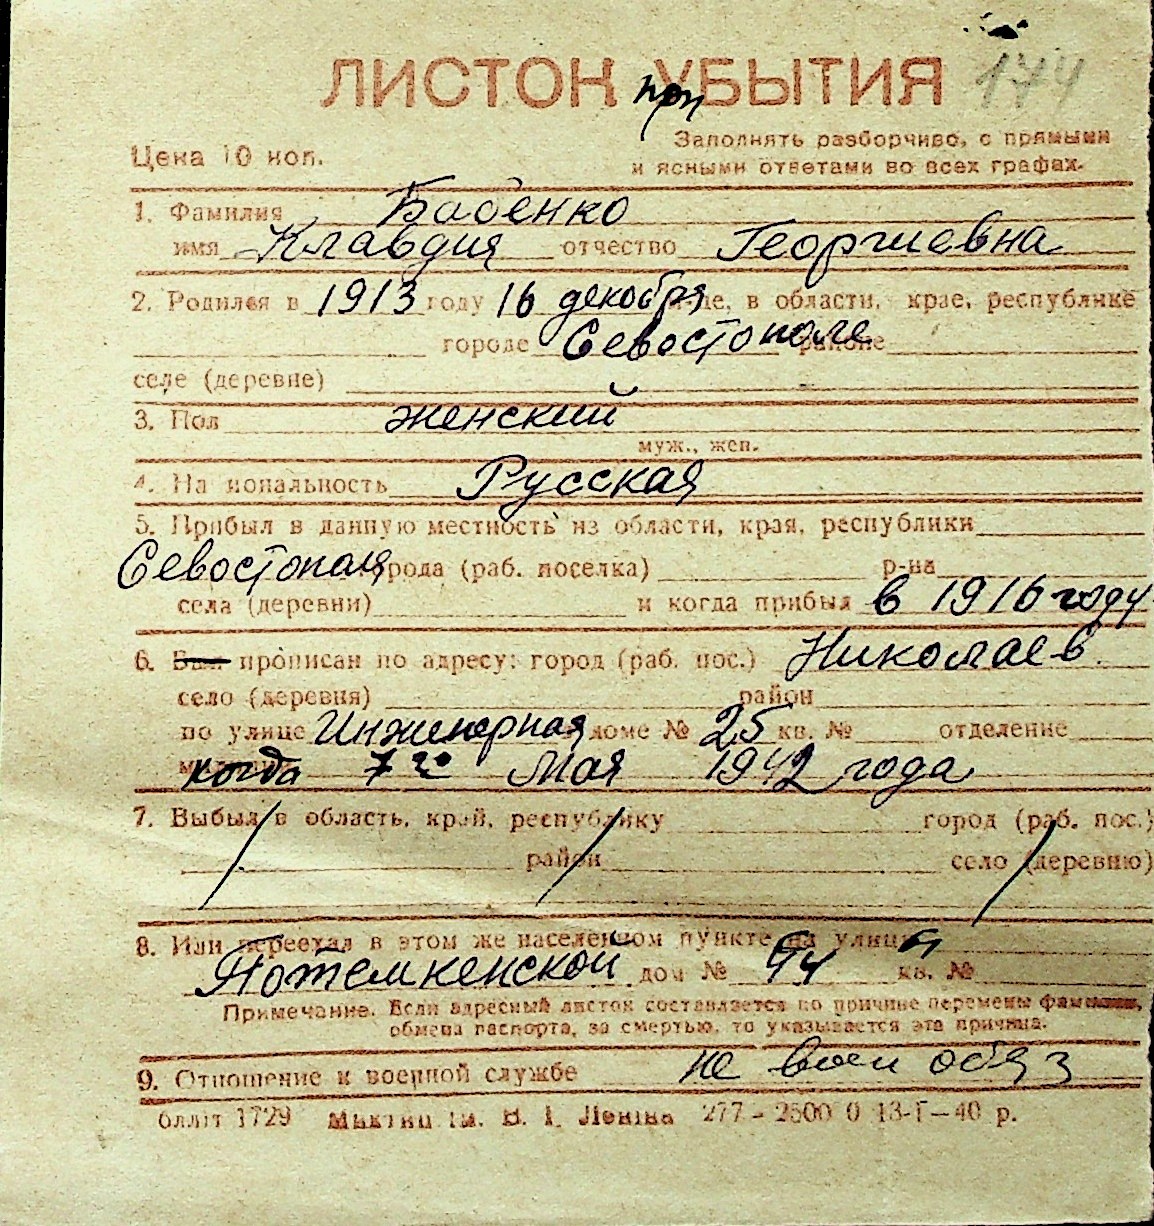 174
ЛИСТОК при УБЫТИЯ
Цена 10 коп.
Заполнять разборчиво, с прямыми
и ясными ответами во всех графах.
1. Фамилия Бабенко
имя Клавдия отчество Георгиевна
2. Родился в 1913 году 16 декабря в области, крае, республике
городе Севостополе районе
селе (деревне)
3. Пол женский
муж., жен.
4. На иональность Русская
5. Прибыл в данную местность из области, края, республики
Севостополя города (раб. поселка) р-на
села (деревни) и когда прибыл в 1916 году
6. Был прописан по адресу: город (раб. пос.) Николаев
село (деревня) район
по улице Инженерная доме № 25 кв. № отделение
когда 7го Мая 1942 года
7. Выбыл в область, край, республику город (раб. пос.)
район село (деревню)
8. Или переехал в этом же населенном пункте на улицу
Потемкенской дом № кв. №
Примечание. Если адресный листок составляется по причине перемены фамилии,
обмена паспорта, за смертью, то указывается эта причина.
9. Отношение к военной службе не воен обяз
блліт 1729 ім. В. І. Леніна 277 - 2500 0 13-I-40 р.